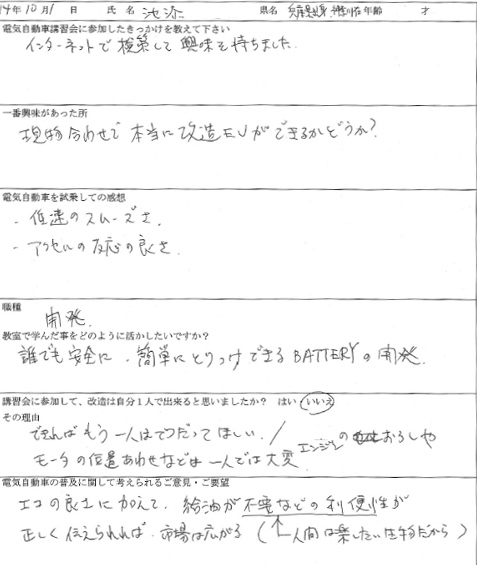 14年10月1日 氏名 池 県名 兵庫県 年齢 才
電気自動車講習会に参加したきっかけを教えて下さい
インターネットで検索して興味を持ちました
一番興味があった所
現物合わせで本当に改造EVができるかどうか?
電気自動車を試乗しての感想
- 低速のスムーズさ.
- アクセルの反応の良さ.
職種
開発.
教室で学んだ事をどのように活かしたいですか?
誰でも安全に.簡単にとりつけできるBATTERYの開発.
講習会に参加して、改造は自分1人で出来ると思いましたか? はい いいえ
その理由
できればもう一人はてつだってほしい./エンジンのおろしや
モータの位置あわせなどは一人では大変
電気自動車の普及に関して考えられるご意見・ご要望
エコの良さに加えて、給油が不要などの利便性が
正しく伝えられれば.市場は広がる(↑人間は楽したい生物だから)